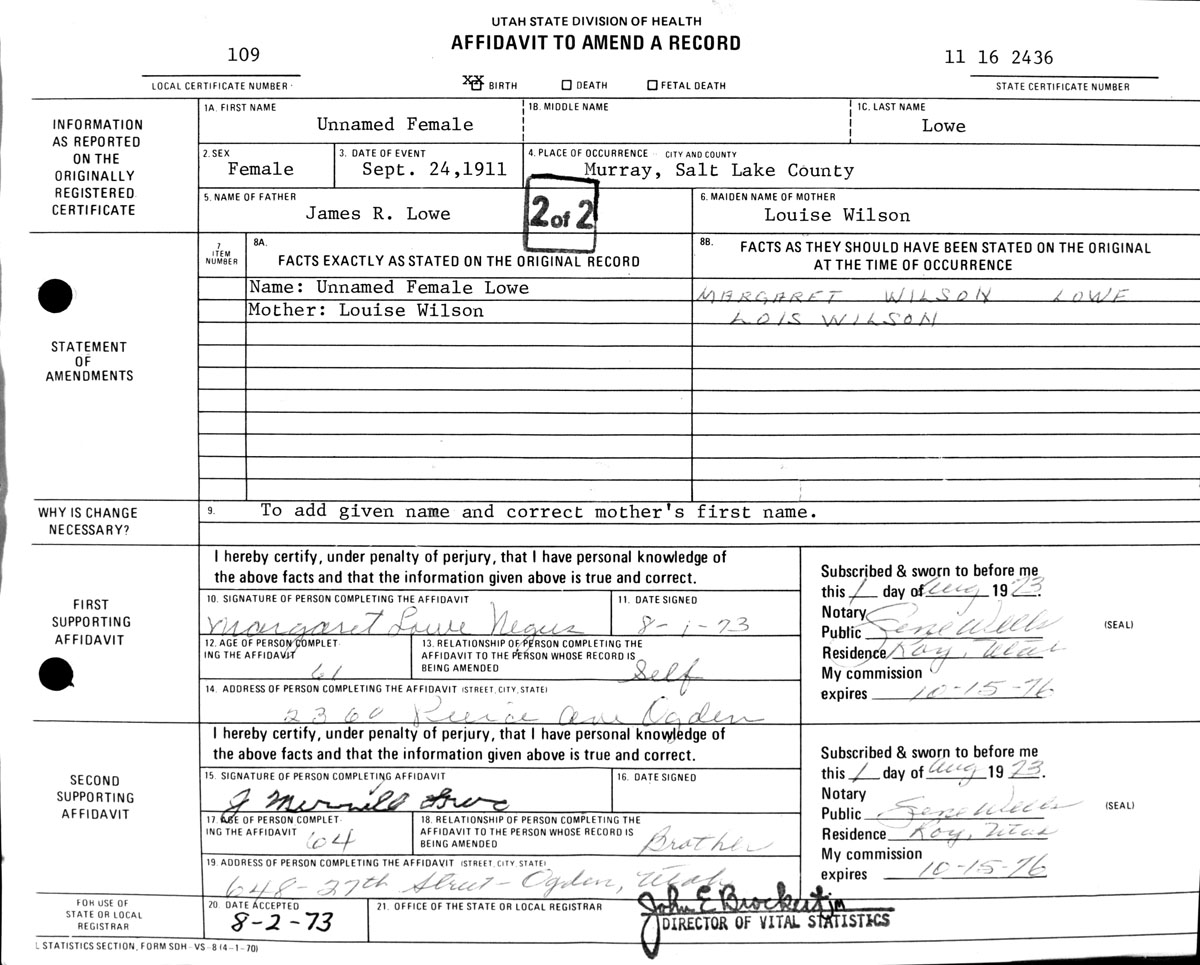 UTAH STATE DIVISION OF HEALTH
AFFIDAVIT TO AMEND A RECORD
109
11 16 2436
LOCAL CERTIFICATE NUMBER
XX BIRTH DEATH FETAL DEATH
STATE CERTIFICATE NUMBER
INFORMATION
AS REPORTED
ON THE
ORIGINALLY
REGISTERED
CERTIFICATE
1A. FIRST NAME
Unnamed Female
1B. MIDDLE NAME
1C. LAST NAME
Lowe
2. SEX
Female
3. DATE OF EVENT
Sept. 24,1911
4. PLACE OF OCCURRENCE - CITY AND COUNTY
Murray, Salt Lake County
5. NAME OF FATHER
James R. Lowe
2 of 2
6. MAIDEN NAME OF MOTHER
Louise Wilson
STATEMENT
OF
AMENDMENTS
7
ITEM
NUMBER
8A.
FACTS EXACTLY AS STATED ON THE ORIGINAL RECORD
8B.
FACTS AS THEY SHOULD HAVE BEEN STATED ON THE ORIGINAL
AT THE TIME OF OCCURRENCE
Name: Unnamed Female Lowe
MARGARET WILSON LOWE
Mother: Louise Wilson
LOIS WILSON
WHY IS CHANGE
NECESSARY?
9. To add given name and correct mother's first name.
FIRST
SUPPORTING
AFFIDAVIT
I hereby certify, under penalty of perjury, that I have personal knowledge of
the above facts and that the information given above is true and correct.
10. SIGNATURE OF PERSON COMPLETING THE AFFIDAVIT
Margaret Lowe Negus
11. DATE SIGNED
8-1-73
12. AGE OF PERSON COMPLET-
ING THE AFFIDAVIT
61
13. RELATIONSHIP OF PERSON COMPLETING THE
AFFIDAVIT TO THE PERSON WHOSE RECORD IS
BEING AMENDED
Self
14. ADDRESS OF PERSON COMPLETING THE AFFIDAVIT (STREET, CITY, STATE)
2360 Ave Ogden
Subscribed & sworn to before me
this 1 day of Aug 1973.
Notary
Public Gene Wells
(SEAL)
Residence Roy, Utah
My commission
expires 10-15-76
SECOND
SUPPORTING
AFFIDAVIT
I hereby certify, under penalty of perjury, that I have personal knowledge of
the above facts and that the information given above is true and correct.
15. SIGNATURE OF PERSON COMPLETING AFFIDAVIT
J Merrill Lowe
16. DATE SIGNED
17. AGE OF PERSON COMPLET-
ING THE AFFIDAVIT
64
18. RELATIONSHIP OF PERSON COMPLETING THE
AFFIDAVIT TO THE PERSON WHOSE RECORD IS
BEING AMENDED
Brother
19. ADDRESS OF PERSON COMPLETING THE AFFIDAVIT (STREET, CITY, STATE)
648-27th Street - Ogden, Utah
Subscribed & sworn to before me
this 1 day of Aug 1973.
Notary
Public Gene Wells
(SEAL)
Residence Roy, Utah
My commission
expires 10-15-76
FOR USE OF
STATE OR LOCAL
REGISTRAR
20. DATE ACCEPTED
8-2-73
21. OFFICE OF THE STATE OR LOCAL REGISTRAR
John E Brockert jm
DIRECTOR OF VITAL STATISTICS
L STATISTICS SECTION, FORM SDH-VS-8 (4-1-70)